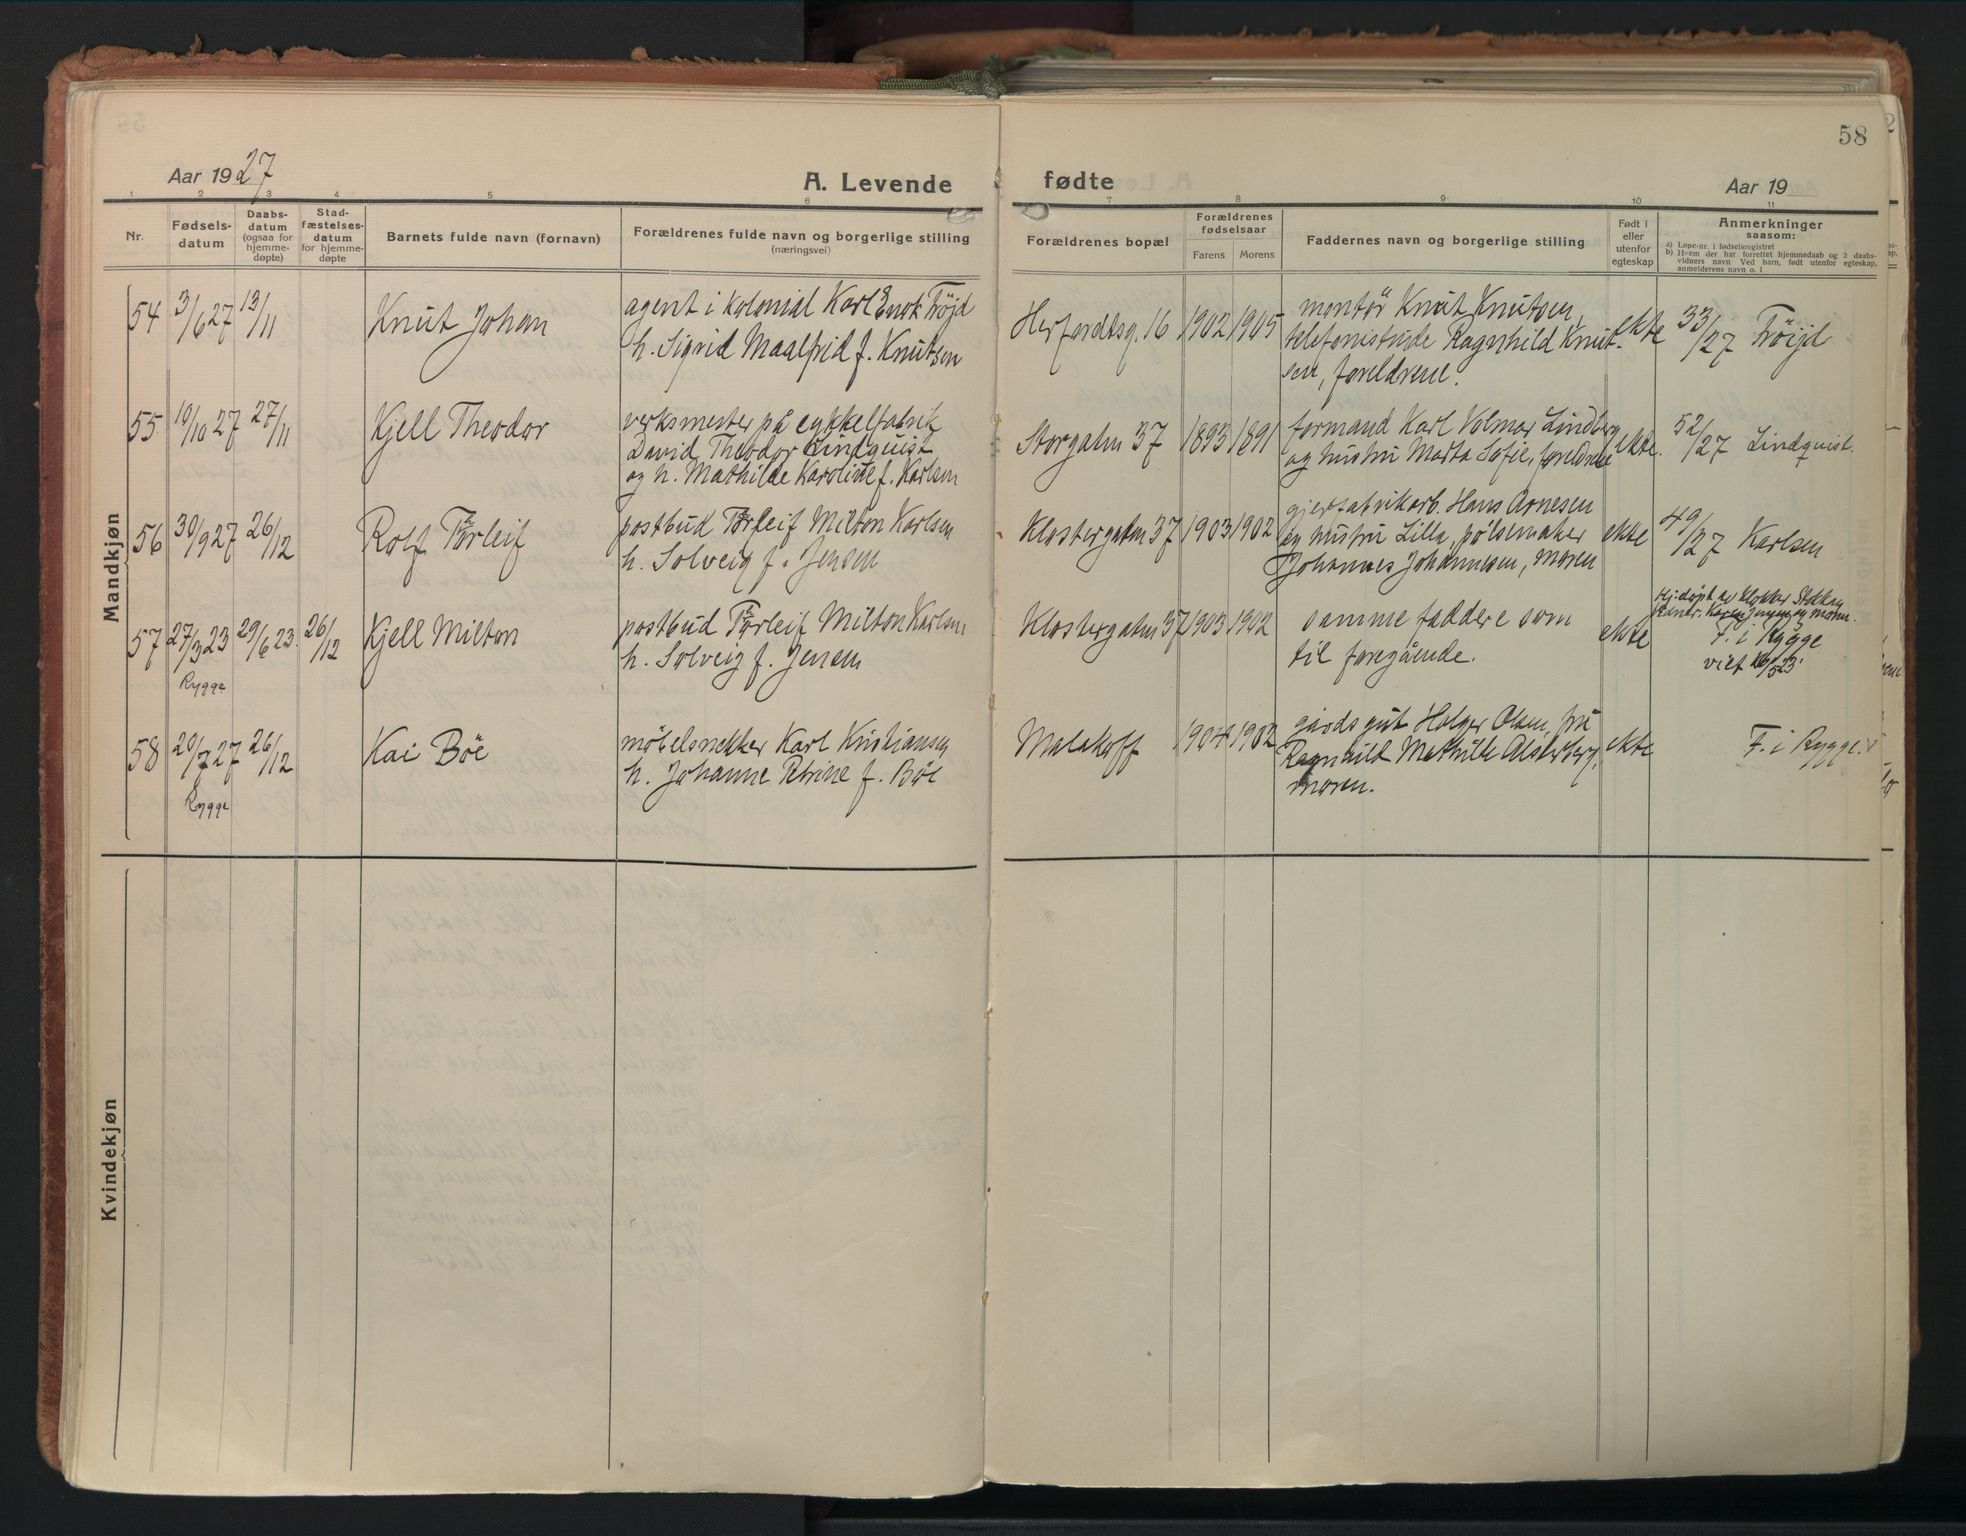 58
Aar 1927
A. Levende
fødte
Aar 19
1 2 3 4 5 6 7 8 9 10 11
Nr.
Fødsels-
datum
Daabs-
datum
(ogsaa for
hjemme-
døpte)
Stad-
fæstelses-
datum
for hjemme-
døpte
Barnets fulde navn (fornavn)
Forældrenes fulde navn og borgerlige stilling
(næringsvei)
Forældrenes bopæl
Forældrenes
fødselsaar
Farens Morens
Faddernes navn og borgerlige stilling
Født i
eller
utenfor
egteskap
Anmerkninger
saasom:
a) Løpe-nr. i fødselsregistret
b) Hvem der har forrettet hjemmedaab og 2 daabs-
vidners navn Ved barn, født utenfor egteskap,
anmelderens navn o. l
Mandkjøn
54 3/6 27 13/11 Knut Johan
agent i kolonial Karl Enok Fröjd
h. Sigrid Maalfrid f. Knutsen
Herfordtsg. 16 1902 1905
montör Knut Knutsen,
Ragnhild Knut-
sen, foreldrene.
ekte 33/27 Fröijd
55 19/10 27 27/11 Kjell Theodor
verksmester på cykkelfabrik
David Theodor Lindquist
og h. Mathilde Karoline f. Karlsen
Storgaten 37 1893 1891
formand Karl Volmar Lindberg
og hustru Marta Sofie, foreldrene
ekte. 52/27 Lindquist.
56 30/9 27 26/12 Rolf Torleif
postbud Torleif Milton Karlsen
h. Solveig f. Jensen
Klostergaten 37 1903 1902
Hans Arnesen
og hustru Lilla, pølsemaker
Johannes Johannesen, moren
ekte 49/27 Karlsen
57 27/3 23 29/6 23. 26/12 Kjell Milton
Rygge
postbud Torleif Milton Karlsen
h. Solveig f. Jensen
Klostergaten 37 1903 1902
samme faddere som
til foregående.
ekte
Hj.døpt av klokker Stokken
Karen Jensen og moren.
F. i Rygge
viet 16/5 23.
58 20/7 27 26/12 Kai Böe
Rygge
møbelsnekker Karl Kristiansen
h. Johanne Petrine f. Böe
Malakoff 1904 1902
gårdsgut Holger Olsen, fru
Ragnhild Mathilde
moren.
ekte F. i Rygge.
Kvindekjøn